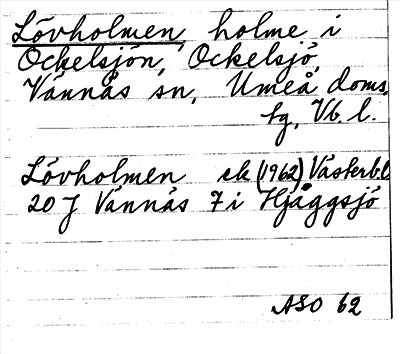 Lövholmen, holme i
Ockelsjön, Ockelsjö,
Vännäs sn, Umeå doms.
tg, Vb. l.
Lövholmen ek (1962) Västerb.l
20 J Vännäs 7 i Hjåggsjö
ASO 62